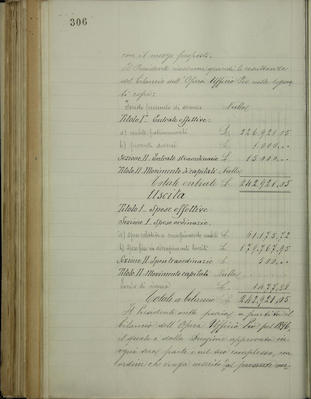 306
con il mezzo proposto.
Il Presidente riassume quindi le risultanze
del bilancio dell'Opera Ufficio Pio nelle seguen-
ti cifre:
Fondo presunto di cassa Nulla
Titolo I° Entrate effettive
a) rendite patrimoniali L. 226.921,05
b) proventi diversi L. 1.000.--
Sezione II. Entrate straordinarie L. 15.000.--
Titolo II. Movimento di capitali Nulla
Totale entrate L. 242,921,05
Uscita
Titolo I. Spese effettive
Sezione I. Spese ordinarie
a) L. 61.175,72
b) L. 179,767,95
Sezione II. Spese straordinarie L. 500.--
Titolo II. Movimento capitali Nulla
L. 1477,38
Totale a bilancio L. 242,921,05
Il Presidente mette perciò a partito il
bilancio dell'Opera Ufficio Pio pel 1896,
il quale è dalla Direzione approvato in
ogni sua parte e nel suo complesso, con
ordine che venga inserito al presente ver-